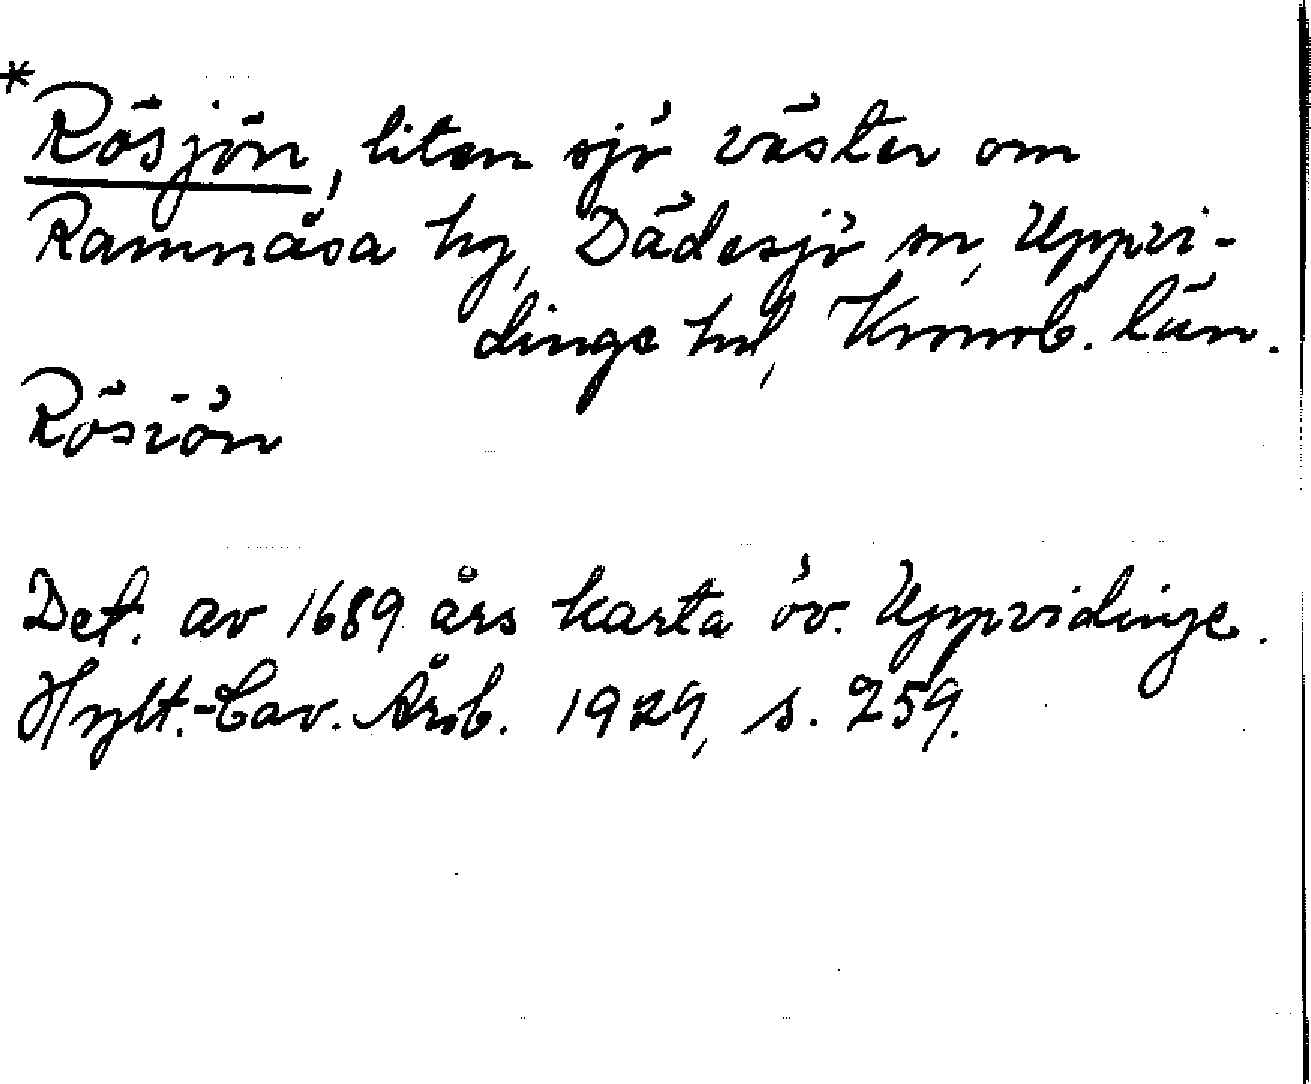 *Rösjön, liten sjö väster om
Ramnåsa by, Dädesjö sn, Uppvi-
dinge hd, Kronob. län.
Rösiön
Det. av 1689 års karta öv. Uppvidinge.
Hylt.-Cav. Årsb. 1929, s. 259.